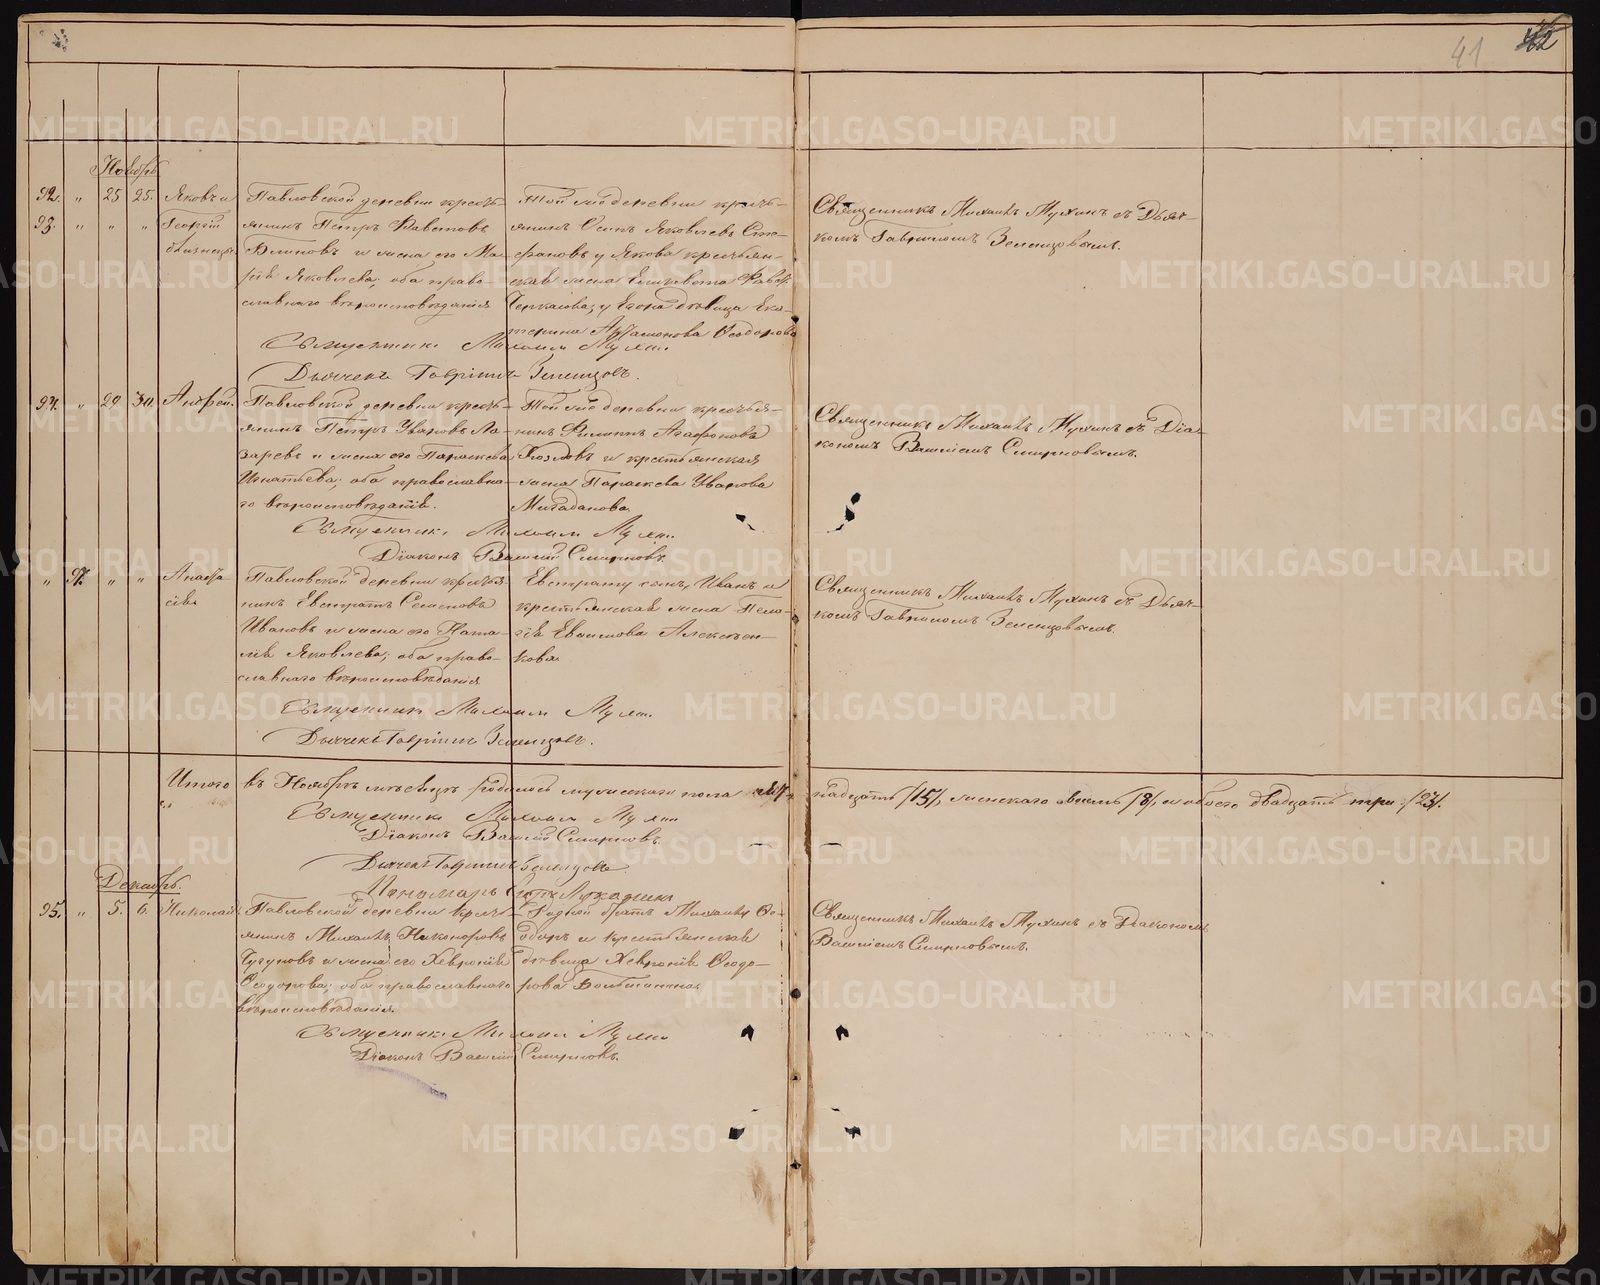 41
42
Ноябрь
92. " 25 25. Яковъ и
93. " " " Георгій
близнецы
Павловской деревни кресть-
янинъ Петръ Фавстовъ
Блиновъ и жена его Ма-
рія Яковлева; оба право-
славнаго вѣроисповѣданія
Той же деревни кресть-
янинъ Осипъ Яковлевъ Сте-
фановъ; у Якова крестьян-
ская жена Елисавета
у Егора дѣвица Ека-
терина Артамонова Ѳеодорова
Священникъ Михаилъ Мухинъ
Дьячекъ Гавріилъ Зеленцовъ.
Священникъ Михаилъ Мухинъ съ Дьяч-
комъ Гавріиломъ Зеленцовымъ.
94. " 29 30. Андрей.
Павловской деревни кресть-
янинъ Петръ Уваровъ Ла-
заревъ и жена его Параскева
Игнатьева; оба православна-
го вѣроисповѣданія.
Той же деревни крестья-
нинъ Филиппъ Агафоновъ
Козловъ и крестьянская
жена Параскева Уварова
Священникъ Михаилъ Мухинъ
Діаконъ Василій Смирновъ.
Священникъ Михаилъ Мухинъ съ Діа-
кономъ Василіемъ Смирновымъ.
" " " Анаста-
сія
Павловской деревни крестья-
нинъ Евстратъ Семеновъ
Ивановъ и жена его Ната-
лія Яковлева; оба право-
славнаго вѣроисповѣданія
Евстрату сынъ Иванъ и
крестьянская жена Пела-
гія Алексѣен-
кова
Священникъ Михаилъ Мухинъ
Дьячекъ Гавріилъ Зеленцовъ.
Священникъ Михаилъ Мухинъ съ Дьяч-
комъ Гавріиломъ Зеленцовымъ.
Итого въ Ноябрѣ мѣсяцѣ родилось мужескаго пола пят-
надцать /15/, женскаго восемь /8/, и обоего двадцать три /23/.
Священникъ Михаилъ Мухинъ
Діаконъ Василій Смирновъ.
Дьячекъ Гавріилъ Зеленцовъ
Пономарь
Декабрь.
95. " 5. 6. Николай
Павловской деревни кресть-
янинъ Михаилъ Никоноровъ
Чугуновъ и жена его Хевронія
Ѳеодорова; оба православнаго
вѣроисповѣданія.
Родной братъ Михаилу Ѳе-
одоръ и крестьянская
дѣвица Хевронія Ѳеодо-
рова
Священникъ Михаилъ Мухинъ
Діаконъ Василій Смирновъ.
Священникъ Михаилъ Мухинъ съ Діакономъ
Василіемъ Смирновымъ.
METRIKI.GASO-URAL.RU